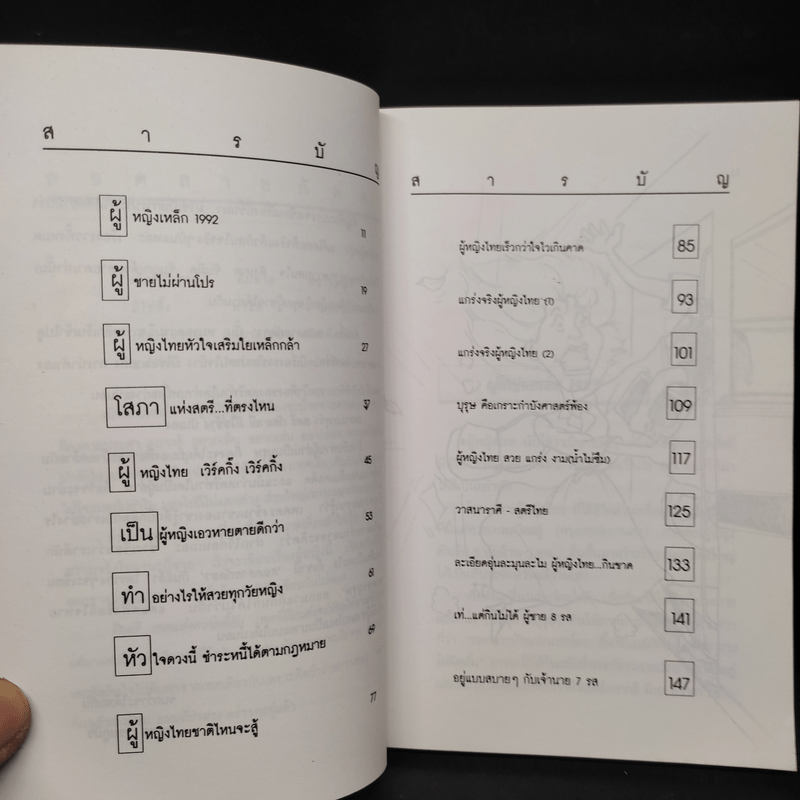 ส า ร บั ญ
ผู้หญิงเหล็ก 1992 11
ผู้ชายไม่ผ่านโปร 19
ผู้หญิงไทยหัวใจเสริมใยเหล็กกล้า 27
โสภาแห่งสตรี...ที่ตรงไหน 37
ผู้หญิงไทย เวิร์คกิ้ง เวิร์คกิ้ง 45
เป็นผู้หญิงเอวหายตายดีกว่า 53
ทำอย่างไรให้สวยทุกวัยหญิง 61
หัวใจดวงนี้ ชำระหนี้ได้ตามกฎหมาย 69
ผู้หญิงไทยชาติไหนจะสู้ 77
ส า ร บั ญ
ผู้หญิงไทยเร็วกว่าใจไวเกินคาด 85
แกร่งจริงผู้หญิงไทย (1) 93
แกร่งจริงผู้หญิงไทย (2) 101
บุรุษ คือเกราะกำบังศาสตร์พ้อง 109
ผู้หญิงไทย สวย แกร่ง งาม(น้ำไม่ซึม) 117
วาสนาราศี - สตรีไทย 125
ละเอียดอุ่นละมุนละไม ผู้หญิงไทย...กินขาด 133
เท่...แต่กินไม่ได้ ผู้ชาย 8 รส 141
อยู่แบบสบายๆ กับเจ้านาย 7 รส 147